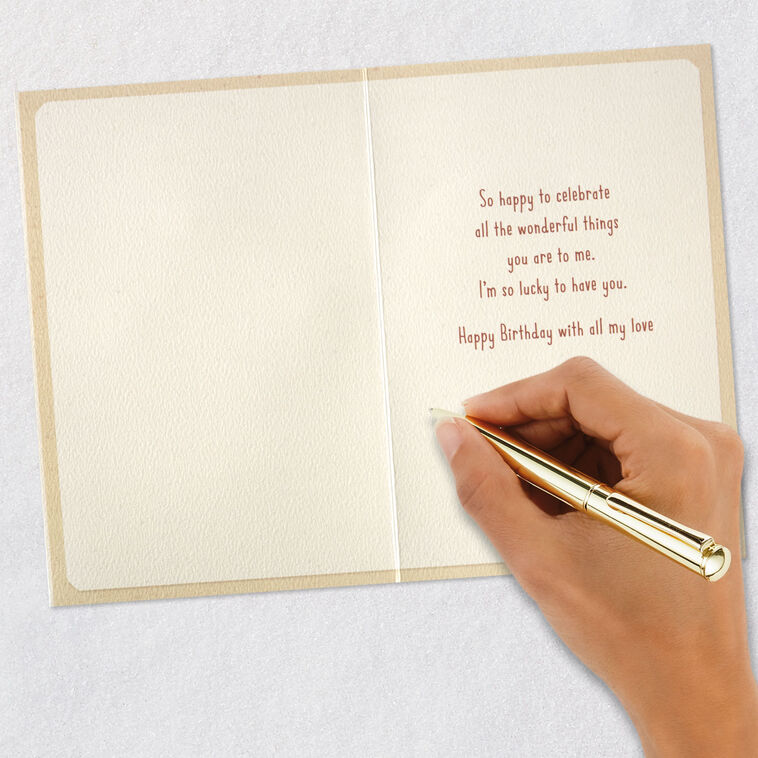 So happy to celebrate
all the wonderful things
you are to me.
I'm so lucky to have you.
Happy Birthday with all my love